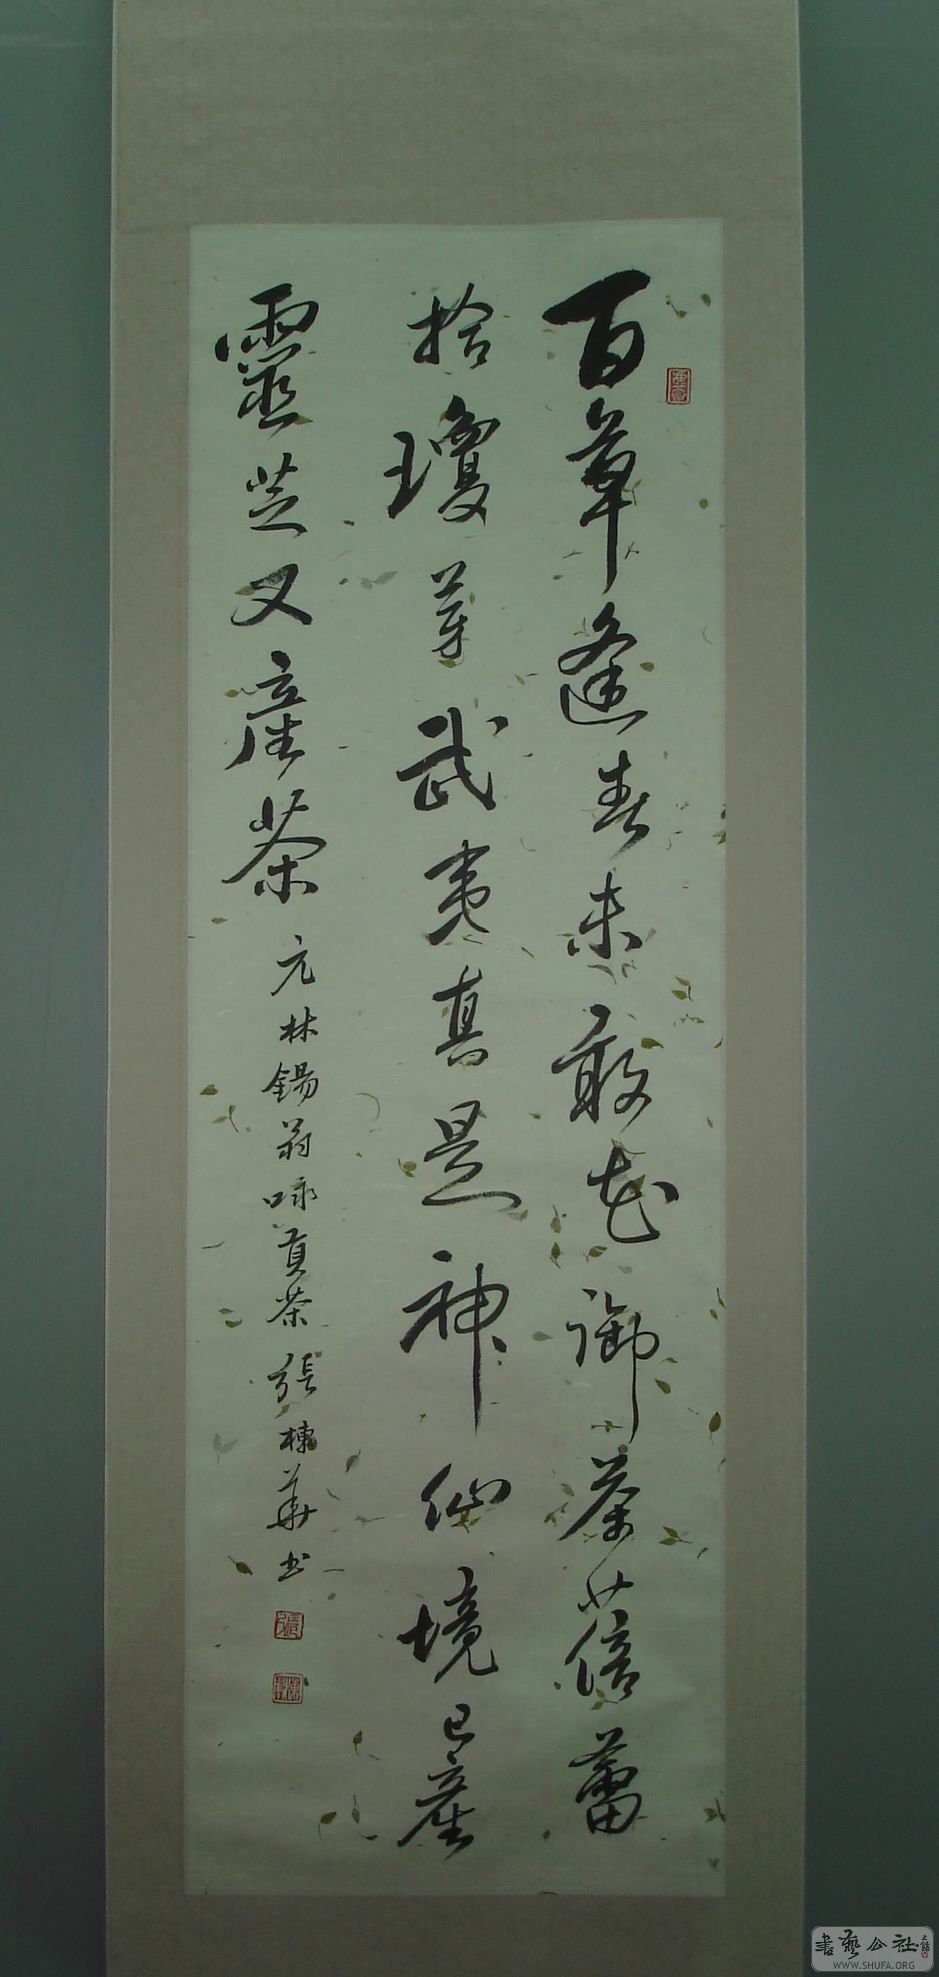 百草逢春未敢花御茶蓓蕾
拾瓊芽武夷真是神仙境已產
靈芝又產茶
元林錫翁咏貢茶張棟華書
書藝公社
WWW.SHUFA.ORG